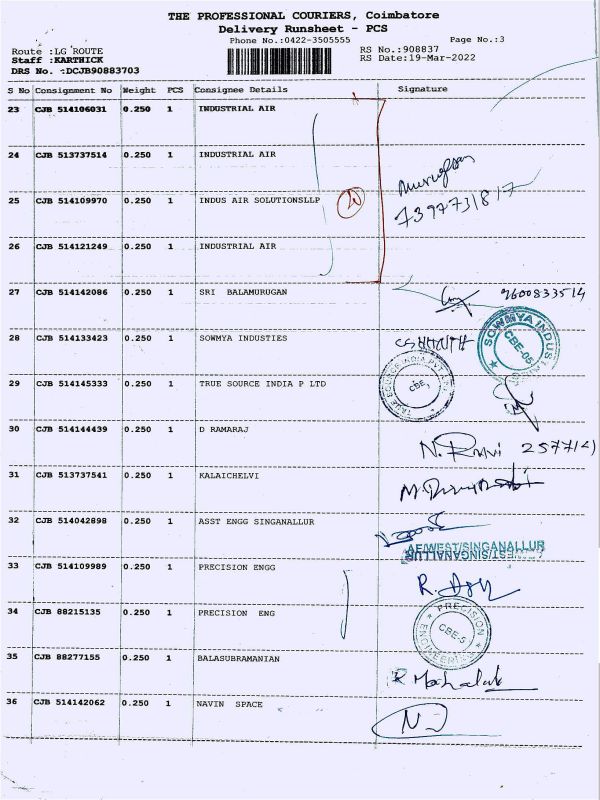 THE PROFESSIONAL COURIERS, Coimbatore
Delivery Runsheet - PCS
Phone No.:0422-3505555
Page No.:3
Route :LG ROUTE
RS No.:908837
Staff :KARTHICK
RS Date:19-Mar-2022
DRS No. :DCJB90883703
S No Consignment No Weight PCS Consignee Details Signature
23 CJB 514106031 0.250 1 INDUSTRIAL AIR
24 CJB 513737514 0.250 1 INDUSTRIAL AIR
25 CJB 514109970 0.250 1 INDUS AIR SOLUTIONSLLP
26 CJB 514121249 0.250 1 INDUSTRIAL AIR
27 CJB 514142086 0.250 1 SRI BALAMURUGAN 9600833514
28 CJB 514133423 0.250 1 SOWMYA INDUSTIES
SOWMYA INDUST
CBE-05
29 CJB 514145333 0.250 1 TRUE SOURCE INDIA P LTD
TRUE SOURCE INDIA PVT LTD
CBE
30 CJB 514144439 0.250 1 D RAMARAJ
31 CJB 513737541 0.250 1 KALAICHELVI
32 CJB 514042898 0.250 1 ASST ENGG SINGANALLUR
AE/WEST/SINGANALLUR
33 CJB 514109989 0.250 1 PRECISION ENGG
34 CJB 88215135 0.250 1 PRECISION ENG
PRECISION
CBE-5
35 CJB 88277155 0.250 1 BALASUBRAMANIAN
36 CJB 514142062 0.250 1 NAVIN SPACE